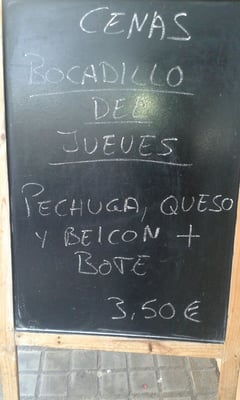 CENAS
BOCADILLO
DEL
JUEVES
PECHUGA, QUESO
Y BEICON +
BOTE
3,50 €